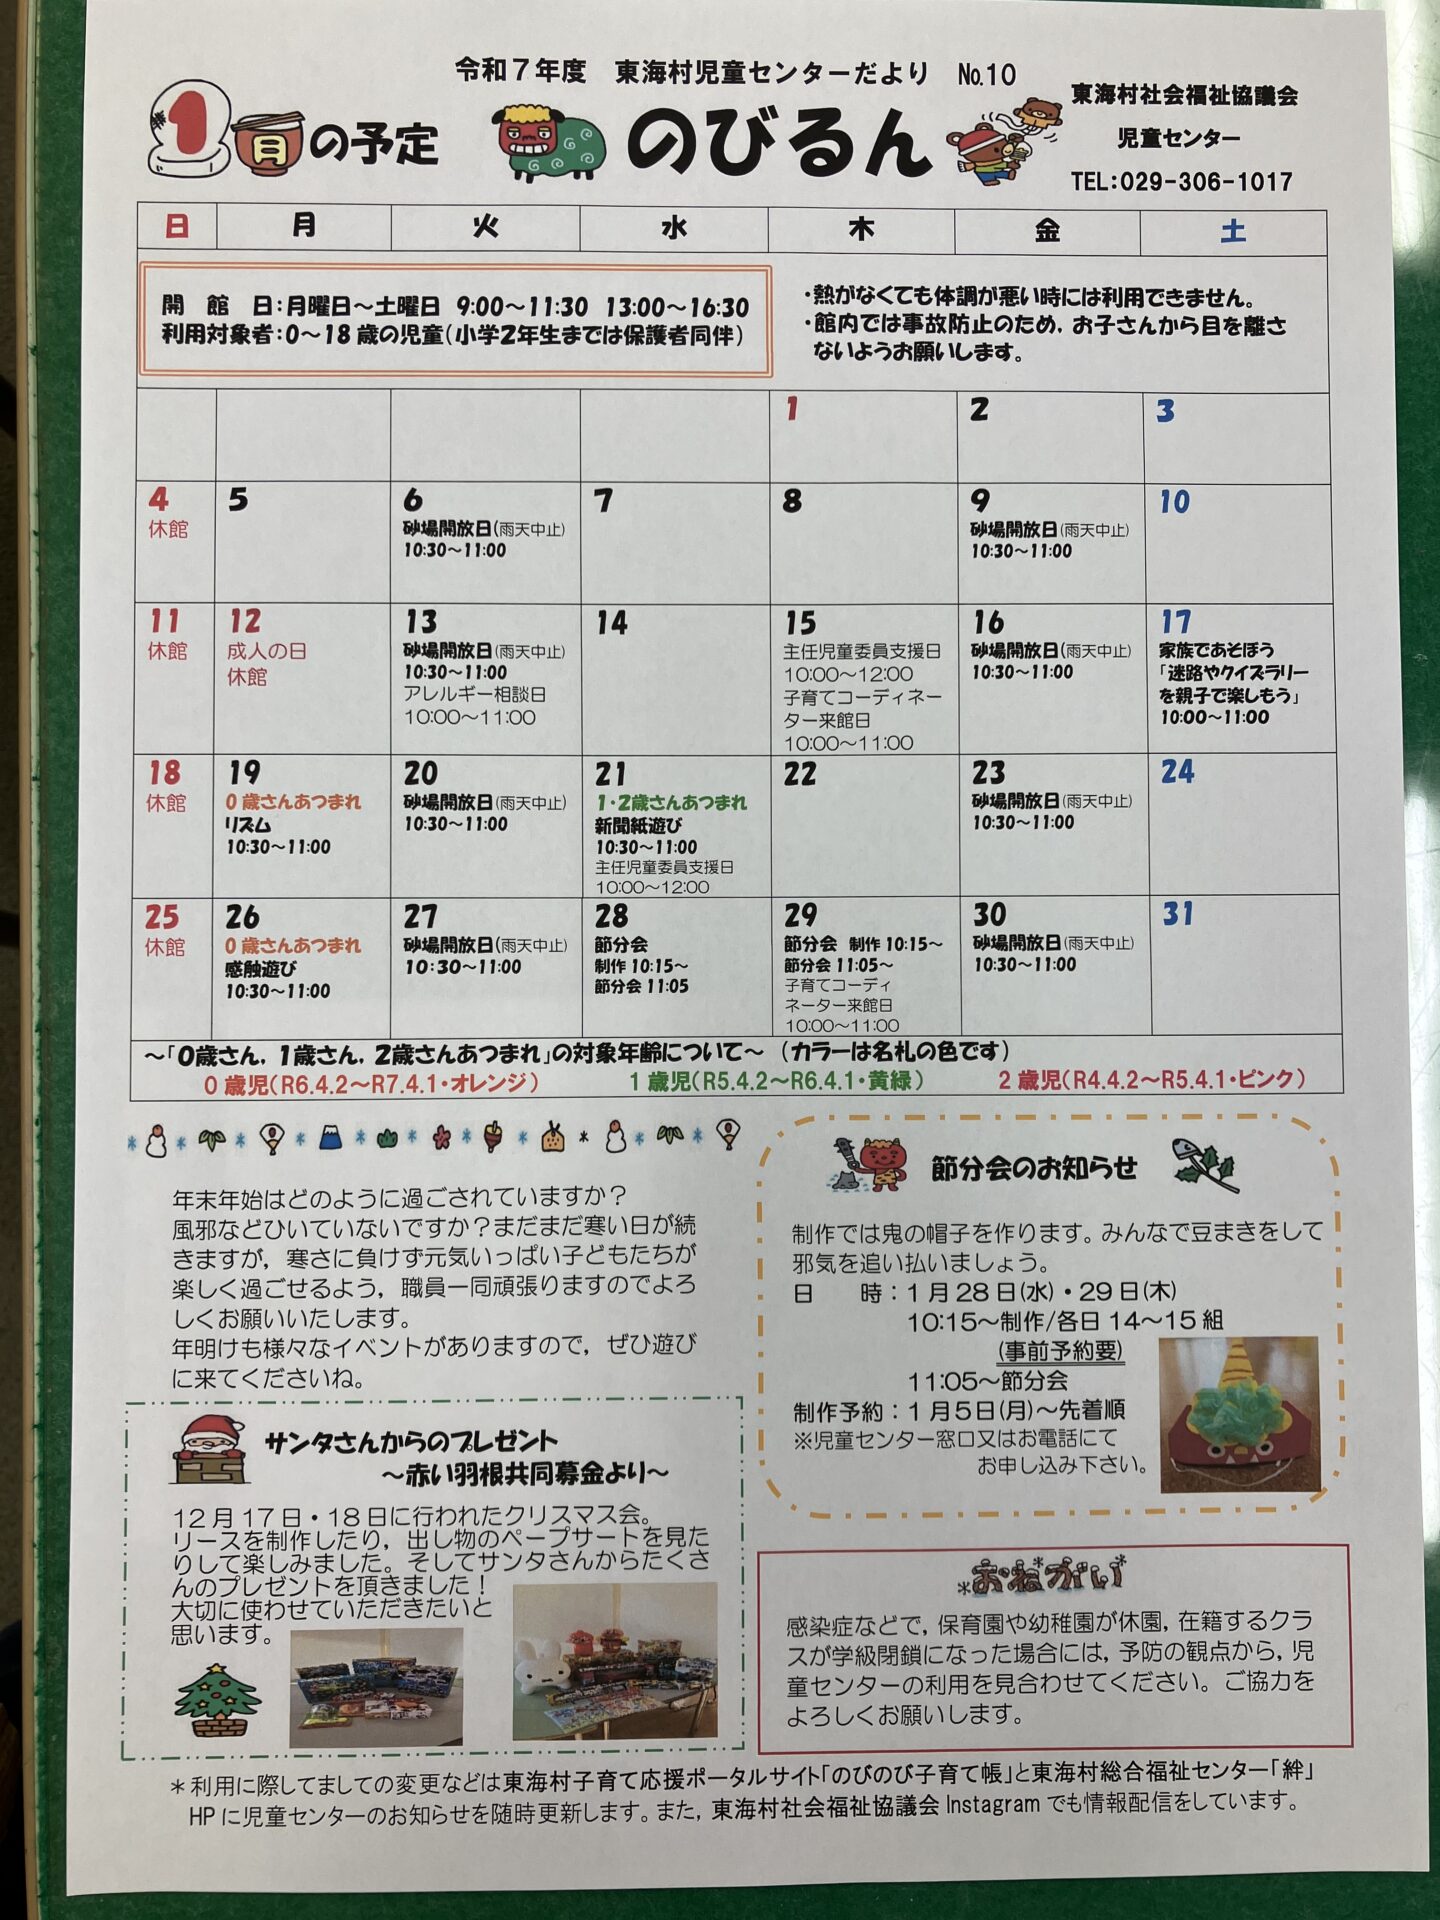 令和7年度 東海村児童センターだより No.10
1月の予定
のびるん
東海村社会福祉協議会
児童センター
TEL:029-306-1017
日 月 火 水 木 金 土
開 館 日:月曜日~土曜日 9:00~11:30 13:00~16:30
利用対象者:0~18歳の児童(小学2年生までは保護者同伴)
・熱がなくても体調が悪い時には利用できません。
・館内では事故防止のため,お子さんから目を離さ
ないようお願いします。
1
2
3
4
休館
5
6
砂場開放日(雨天中止)
10:30~11:00
7
8
9
砂場開放日(雨天中止)
10:30~11:00
10
11
休館
12
成人の日
休館
13
砂場開放日(雨天中止)
10:30~11:00
アレルギー相談日
10:00~11:00
14
15
主任児童委員支援日
10:00~12:00
子育てコーディネー
ター来館日
10:00~11:00
16
砂場開放日(雨天中止)
10:30~11:00
17
家族であそぼう
「迷路やクイズラリー
を親子で楽しもう」
10:00~11:00
18
休館
19
0歳さんあつまれ
リズム
10:30~11:00
20
砂場開放日(雨天中止)
10:30~11:00
21
1・2歳さんあつまれ
新聞紙遊び
10:30~11:00
主任児童委員支援日
10:00~12:00
22
23
砂場開放日(雨天中止)
10:30~11:00
24
25
休館
26
0歳さんあつまれ
感触遊び
10:30~11:00
27
砂場開放日(雨天中止)
10:30~11:00
28
節分会
制作 10:15~
節分会 11:05
29
節分会 制作 10:15~
節分会 11:05~
子育てコーディ
ネーター来館日
10:00~11:00
30
砂場開放日(雨天中止)
10:30~11:00
31
~「0歳さん,1歳さん,2歳さんあつまれ」の対象年齢について~ (カラーは名札の色です)
0歳児(R6.4.2~R7.4.1・オレンジ) 1歳児(R5.4.2~R6.4.1・黄緑) 2歳児(R4.4.2~R5.4.1・ピンク)
年末年始はどのように過ごされていますか?
風邪などひいていないですか?まだまだ寒い日が続
きますが,寒さに負けず元気いっぱい子どもたちが
楽しく過ごせるよう,職員一同頑張りますのでよろ
しくお願いいたします。
年明けも様々なイベントがありますので,ぜひ遊び
に来てくださいね。
サンタさんからのプレゼント
~赤い羽根共同募金より~
12月17日・18日に行われたクリスマス会。
リースを制作したり,出し物のペープサートを見た
りして楽しみました。そしてサンタさんからたくさ
んのプレゼントを頂きました!
大切に使わせていただきたいと
思います。
節分会のお知らせ
制作では鬼の帽子を作ります。みんなで豆まきをして
邪気を追い払いましょう。
日 時:1月28日(水)・29日(木)
10:15~制作/各日14~15組
(事前予約要)
11:05~節分会
制作予約:1月5日(月)~先着順
※児童センター窓口又はお電話にて
お申し込み下さい。
おねがい
感染症などで,保育園や幼稚園が休園,在籍するクラ
スが学級閉鎖になった場合には,予防の観点から,児
童センターの利用を見合わせてください。ご協力を
よろしくお願いします。
*利用に際してましての変更などは東海村子育て応援ポータルサイト「のびのび子育て帳」と東海村総合福祉センター「絆」
HPに児童センターのお知らせを随時更新します。また,東海村社会福祉協議会 Instagram でも情報配信をしています。